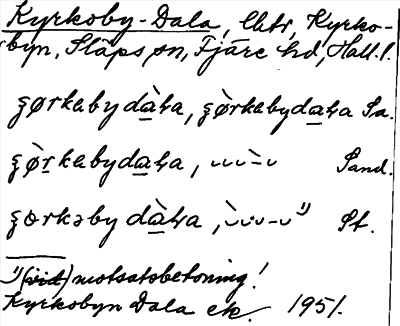 Kyrkoby-Dala, llktr, Kyrko-
byn, Släps sn, Fjäre hd, Hall. l.
ȿørkabydàɫa, ȿørkabydaɫa Sa.
ȿør̀kabydaɫa, Sand.
ȿørkəby dàɫa, 1) St.
1) (vid) motsatsbetoning!
Kyrkobyn Dala ek. 1951.